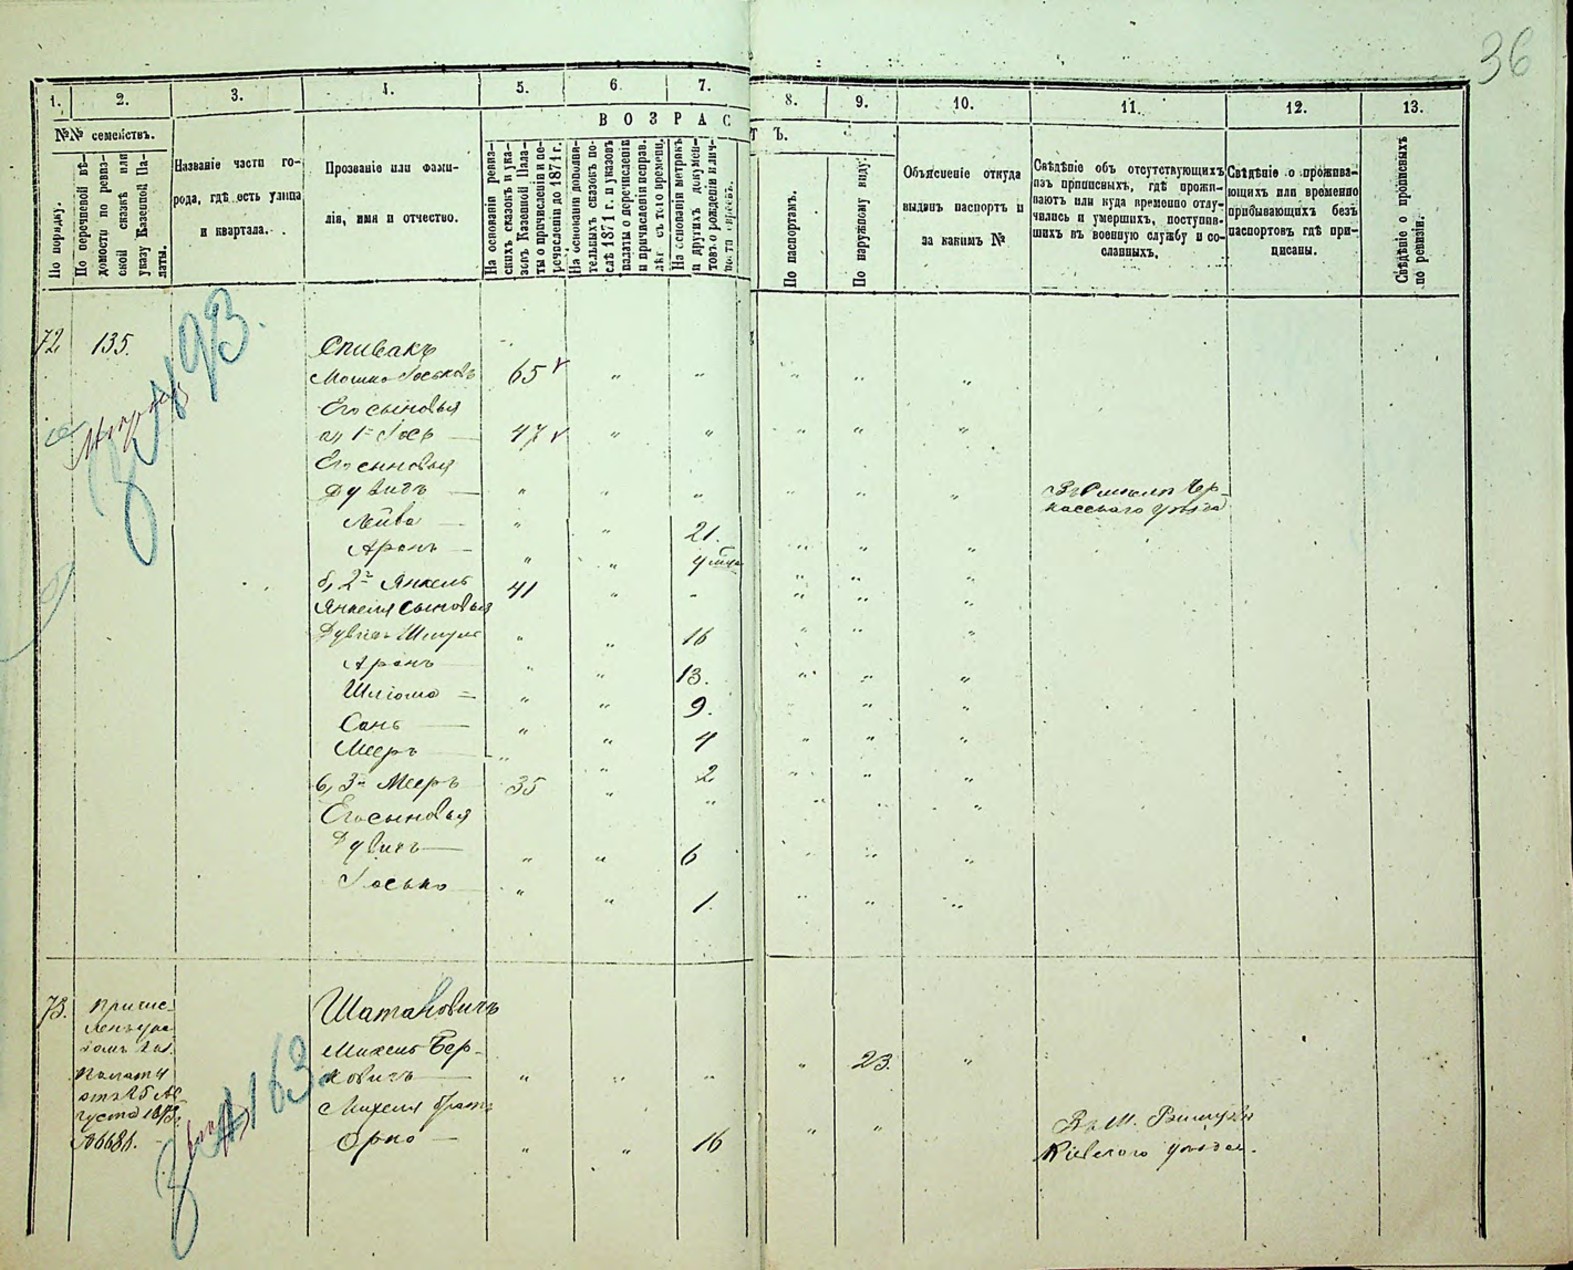 36
1. 2. 3. 4. 5. 6. 7. 8. 9. 10. 11. 12. 13.
№№ семействъ.
По порядку.
По перечневой вѣ-
домости по ревиз-
ской сказкѣ или
указу Казенной Па-
латы.
Названіе части го-
рода, гдѣ есть улица
и квартала.
Прозваніе или фами-
лія, имя и отчество.
ВОЗРАСТЪ.
На основаніи ревиз-
скихъ сказокъ и ука-
зовъ Казенной Пала-
ты о причисленіи и пе-
речисленіи до 1871 г.
На основаніи дополни-
тельныхъ сказокъ по-
слѣ 1871 г. и указовъ
палаты о перечисленіи
и причисленіи исправ.
лѣт съ того времени.
На основаніи метрикъ
и другихъ докумен-
товъ о рожденіи и лич-
По паспортамъ.
По наружному виду.
Объясненіе откуда
выданъ паспортъ и
за какимъ №
Свѣдѣніе объ отсутствующихъ
изъ приписныхъ, гдѣ прожи-
ваютъ или куда временно отлу-
чились и умершихъ, поступив-
шихъ въ военную службу и со-
сланныхъ.
Свѣдѣніе о прожива-
ющихъ или временно
прибывающихъ безъ
паспортовъ гдѣ при-
писаны.
Свѣдѣніе о прописныхъ
по ревизіи.
72 135. Спивакъ
№193.
Мошко Іоськовъ 65 " " " " "
Его сыновья
а, 1й Іось — 47 " " " " "
Его сыновья
Дувидъ — " " " " " "
Черкасскаго уѣзда
Лейба — " " 21.
Аронъ — " " 9 " " "
б, 2й Янкель 41 " " " " "
Янкеля сыновья " " "
Дувидъ Шмуль " " 16 " " "
Аронъ — " " 13. " " "
Шліома — " " 9. " " "
Сань — " " 4 " " "
Мееръ — " " 2 " " "
в, 3й Мееръ 35 " " " " "
Его сыновья
Дувидъ — " " 6 " " "
Іосько — " " 1. " " "
73. Причис-
ленъ ука-
зомъ Каз.
Палаты
отъ 25 Ав-
густа 1873 г.
№6686.
№163.
Шатановичъ
Михель Бер-
ковичъ — " " " " 23. "
Михеля братъ
Орко — " " 16 " "
Въ м.
Кіевскаго уѣзда.